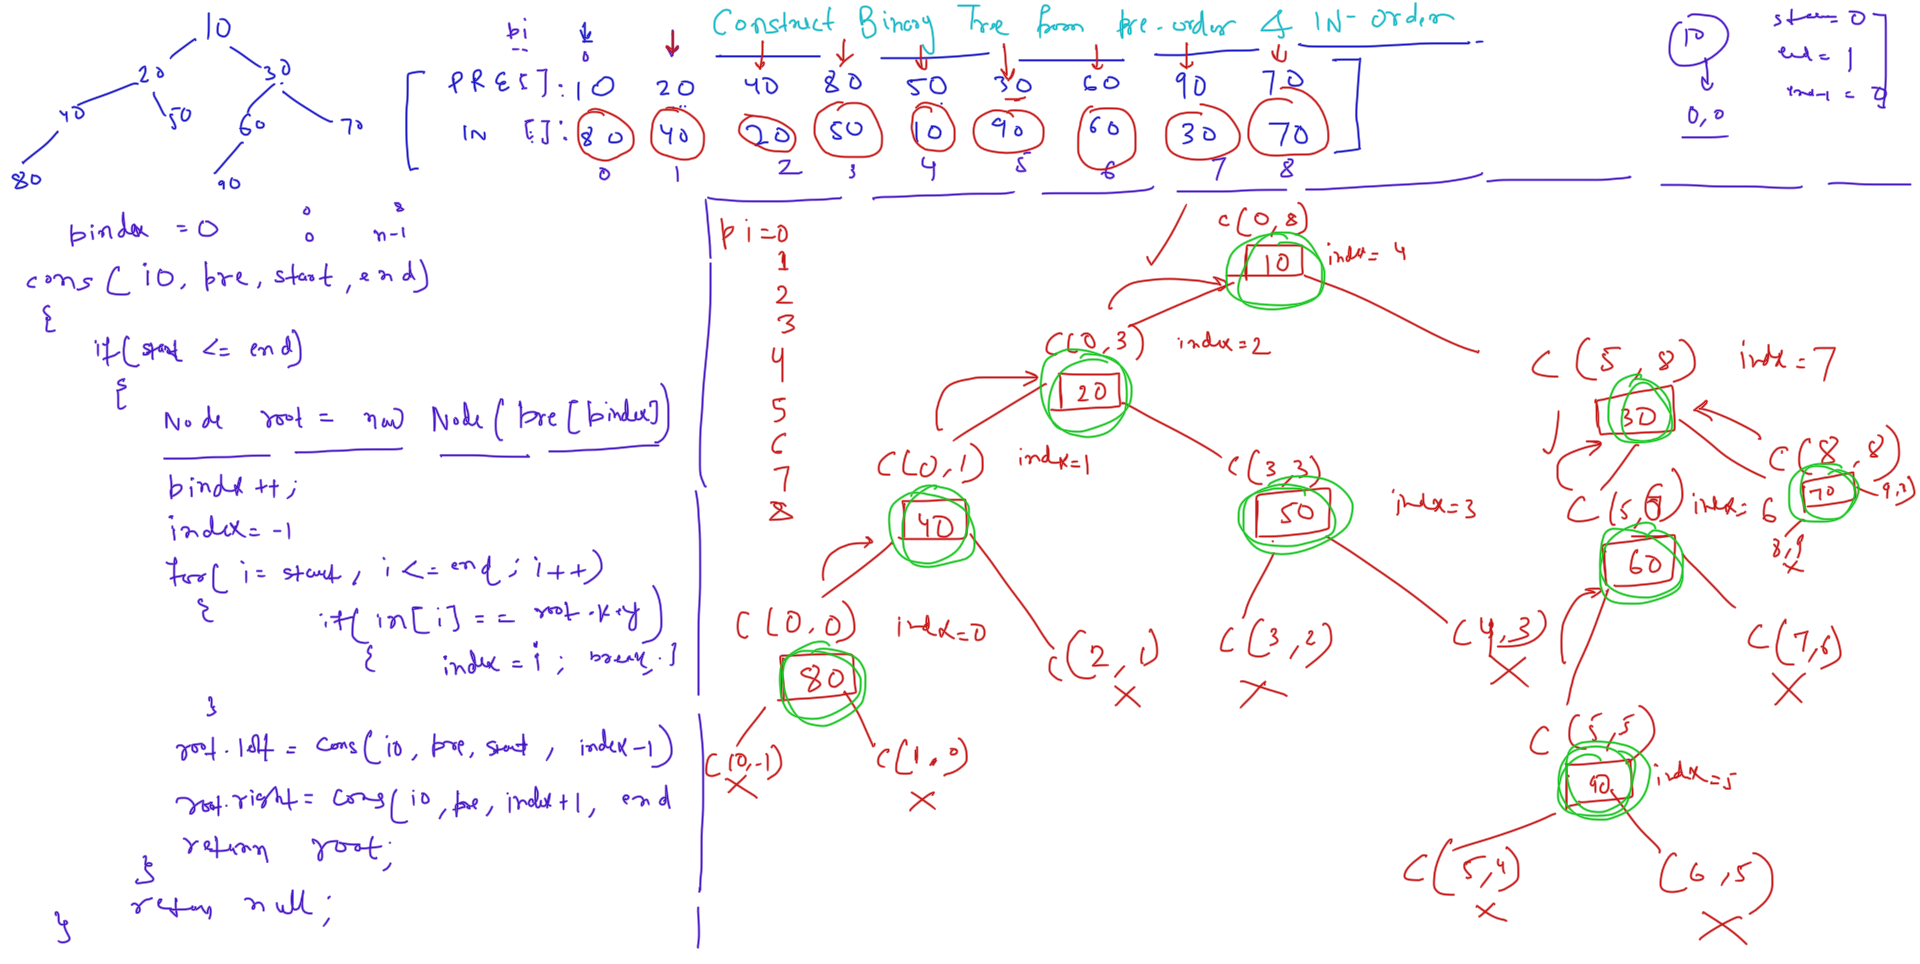 Construct Binary Tree from Pre-order & IN-order
10
20
30
40
50
60
70
80
90
pi
0
PRE[]: 10 20 40 80 50 30 60 90 70
IN []: 80 40 20 50 10 90 60 30 70
0 1 2 3 4 5 6 7 8
10
0,0
start = 0
end = 1
ind-1 = 0
0 8
pindex = 0 0 n-1
cons ( io, pre, start, end)
{
if(start <= end)
{
Node root = new Node(pre[pindex])
pindex ++;
index = -1
for( i = start, i <= end; i++)
{ if( in[i] == root.key)
{ index = i; break; }
}
root.left = cons( io, pre, start, index-1)
root.right = cons( io, pre, index+1, end
return root;
}
return null;
}
pi=0
1
2
3
4
5
6
7
8
c(0,8)
10 index = 4
C(0,3) index=2
20
C(5,8) index=7
30
C(0,1) index=1
40
C(3,3)
50 index=3
C(5,6) index=6
60
C(8,8)
70
9,8)
8,7
X
C(0,0) index=0
80
C(2,1)
X
C(3,2)
X
C(4,3)
X
C(7,6)
X
C(0,-1)
X
C(1,0)
X
C(5,5)
90 index=5
C(5,4)
X
C(6,5)
X